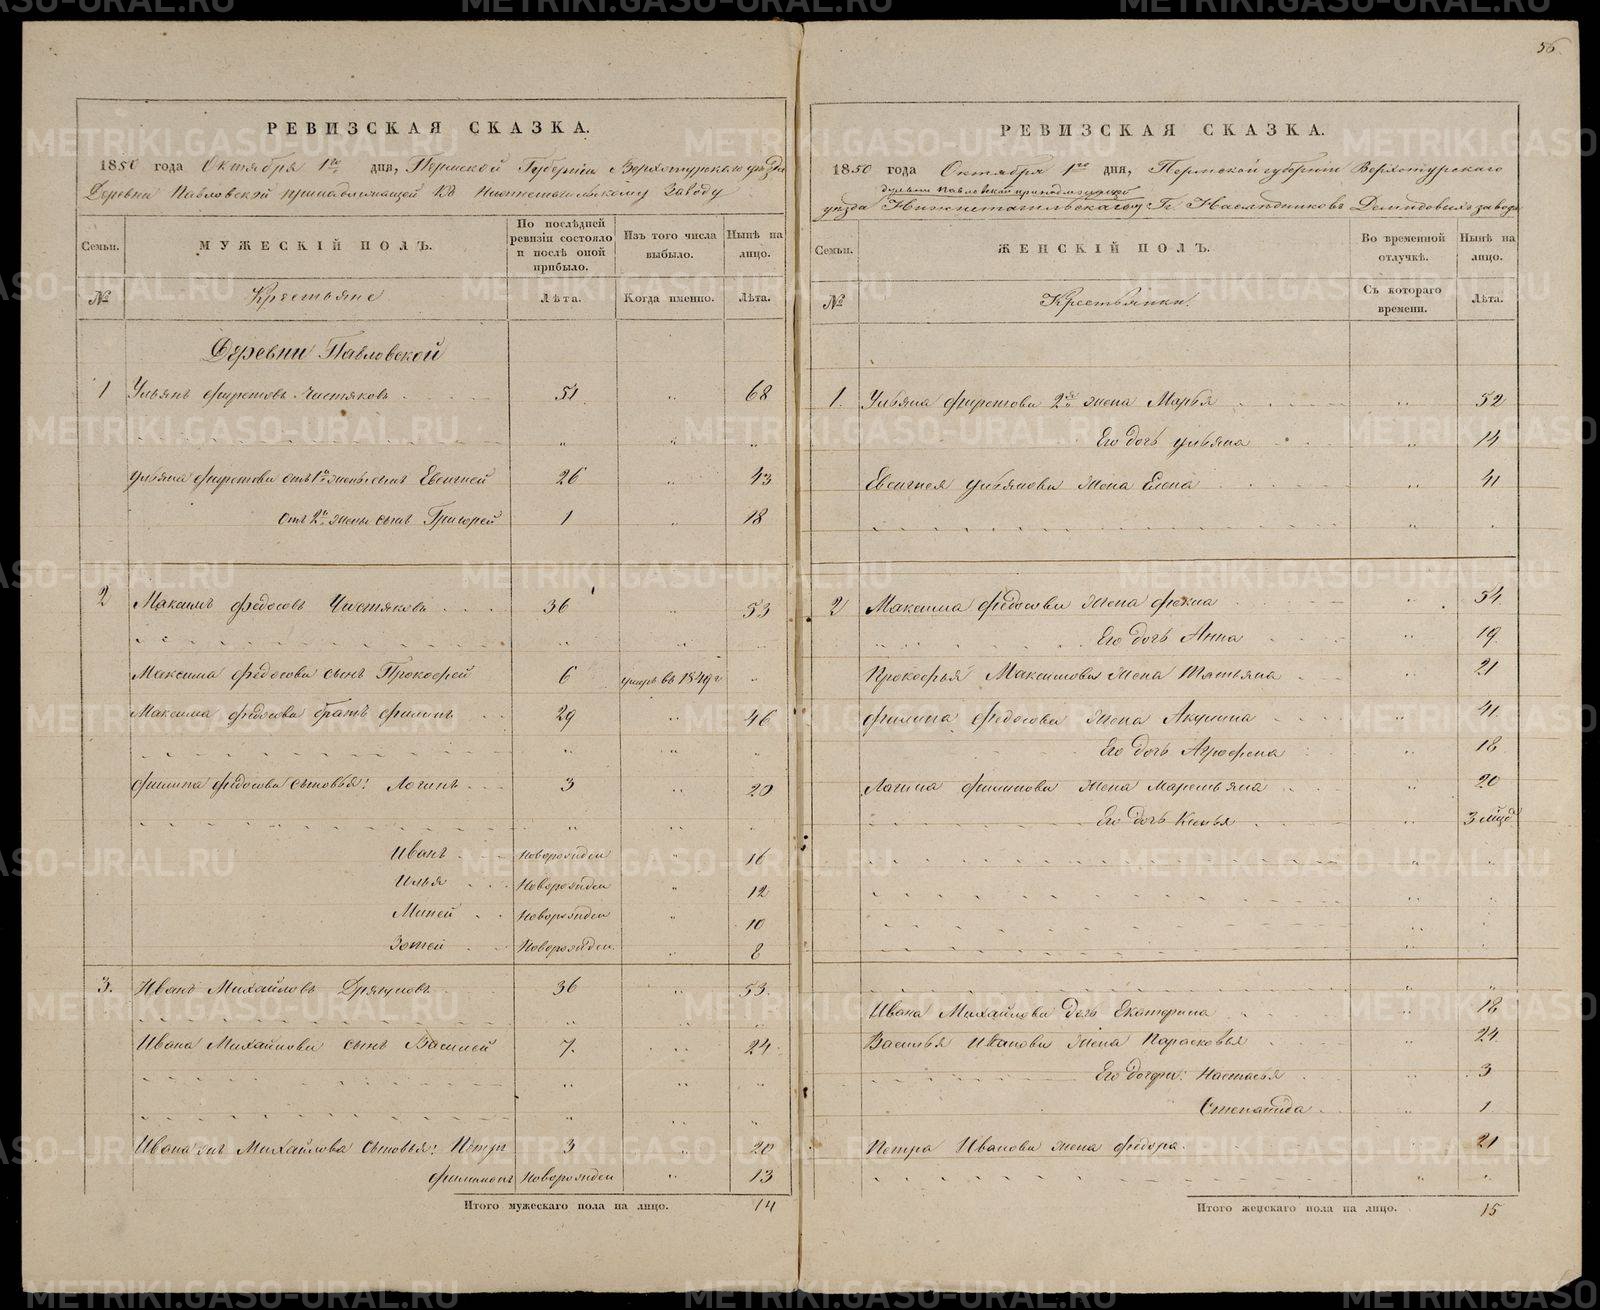 56
РЕВИЗСКАЯ СКАЗКА.
1850 года Октября 1го дня, Пермской Губернiи Верхотурскаго уѣзда
Деревни Павловской принадлежащей къ Нижнетагильскому Заводу
Семьи.
МУЖЕСКIЙ ПОЛЪ.
По послѣдней ревизiи состояло и послѣ оной прибыло.
Изъ того числа выбыло.
Нынѣ на лицо.
№ Крестьяне Лѣта. Когда именно. Лѣта.
Деревни Павловской
1 Ульянъ Фирсовъ Чистяковъ 51 " 68
" " "
Ульяна Фирсова отъ 1й жены сынъ Евсигней 26 " 43
отъ 2й жены сынъ Григорей 1 " 18
2 Максимъ Федосовъ Чистяковъ 36 " 53
" " "
Максима Федосова сынъ Прокофей 6 умеръ въ 1849 г "
Максима Федосова братъ Филипъ 29 " 46
" " "
Филипа Федосова сыновья: Логинъ 3 " 20
" " "
Иванъ новорожден " 16
Илья Новорожден " 12
Миней Новорожден " 10
Зотей Новорожден " 8
3. Иванъ Михайловъ 36 " 53
" " "
Ивана Михайлова сынъ Василей 7. " 24
" " "
" " "
Ивана Михайлова сыновья: Петръ 3 " 20
Филимонъ Новорожден " 13
Итого мужескаго пола на лицо. 14
РЕВИЗСКАЯ СКАЗКА.
1850 года Октября 1го дня, Пермской губернiи Верхотурскаго
деревни Павловской принадлежащей
уѣзда Нижнетагильскому Гг. Наслѣдниковъ Демидовыхъ заводу
Семьи.
ЖЕНСКIЙ ПОЛЪ.
Во временной отлучкѣ.
Нынѣ на лицо.
№ Крестьянки. Съ котораго времени. Лѣта.
1. Ульяна Фирсова 2я жена Марья " 52
Его дочь Ульяна " 14
Евсигнея Ульянова жена Елена " 41
" "
2 Максима Федосова жена Фекла " 54.
Его дочь Анна " 19
Прокофья Максимова жена Татьяна " 21
Филипа Федосова жена Акулина " 41
Его дочь Агрофена " 18
Логина Филипова жена Маремьяна " 20
Его дочь Ксенья " 3 мѣся
" "
" "
" "
" "
" "
Ивана Михайлова дочь Екатерина " 18
Василья Иванова жена Парасковья " 24
Его дочери: Настасья " 3
Степанида " 1
Петра Иванова жена Федора. " 21
" "
Итого женскаго пола на лицо. 15
METRIKI.GASO-URAL.RU